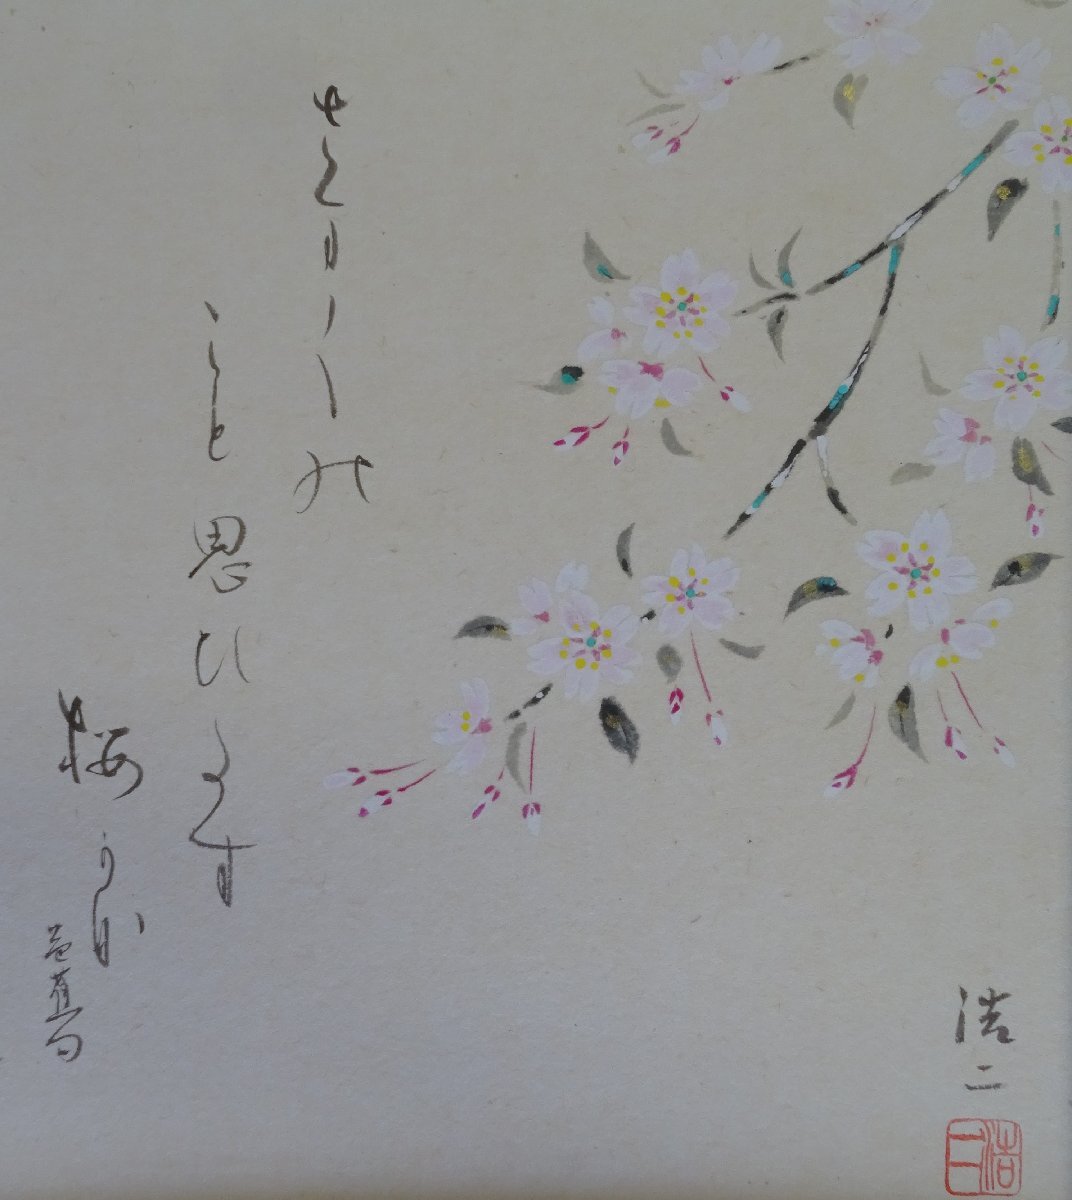 さま〳〵の
こと思ひ出す
桜かな
芭蕉句
浩二
浩二